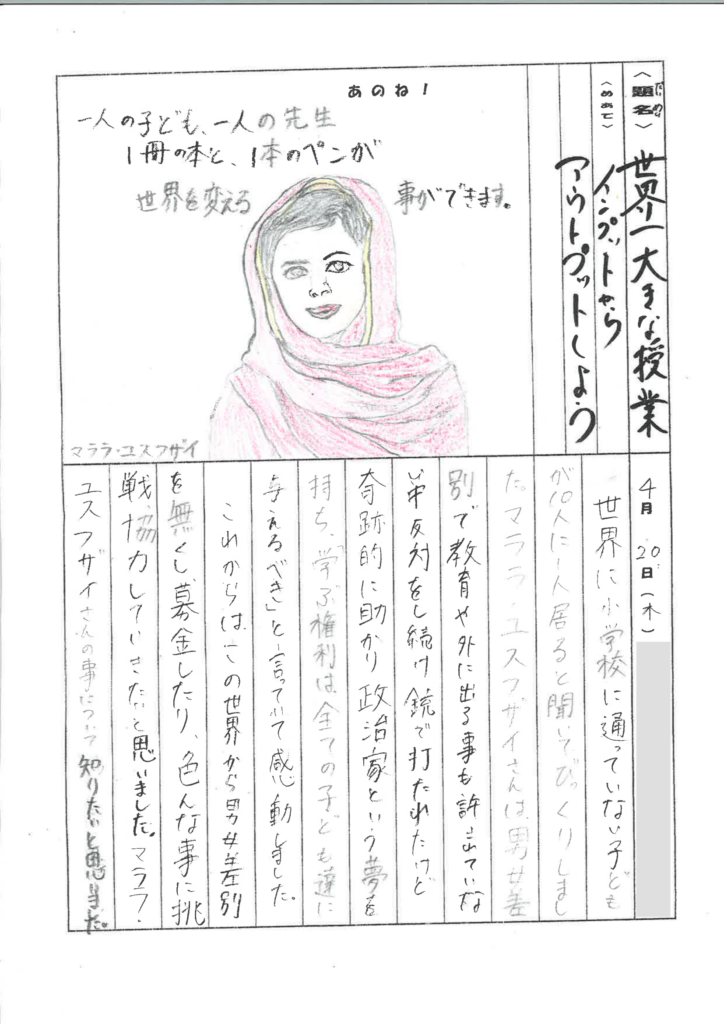 〈題名〉世界一大きな授業
だいめい
〈めあて〉インプットから
アウトプットしよう
あのね!
一人の子ども、一人の先生
1冊の本と、1本のペンが
世界を変える事ができます。
マララ・ユスフザイ
4月20日(木)
世界に小学校に通っていない子ども
が10人に1人居ると聞いてびっくりしまし
た。マララ・ユスフザイさんは、男女差
別で教育や外に出る事も許されていな
い中反対をし続け銃で打たれたけど
奇跡的に助かり政治家という夢を
持ち、「学ぶ権利は、全ての子ども達に
与えるべき」と言っていて感動しました。
これからは、この世界から男女差別
を無くし、募金したり、色んな事に挑
戦、協力していきたいと思いました。マララ・
ユスフザイさんの事について知りたいと思いました。